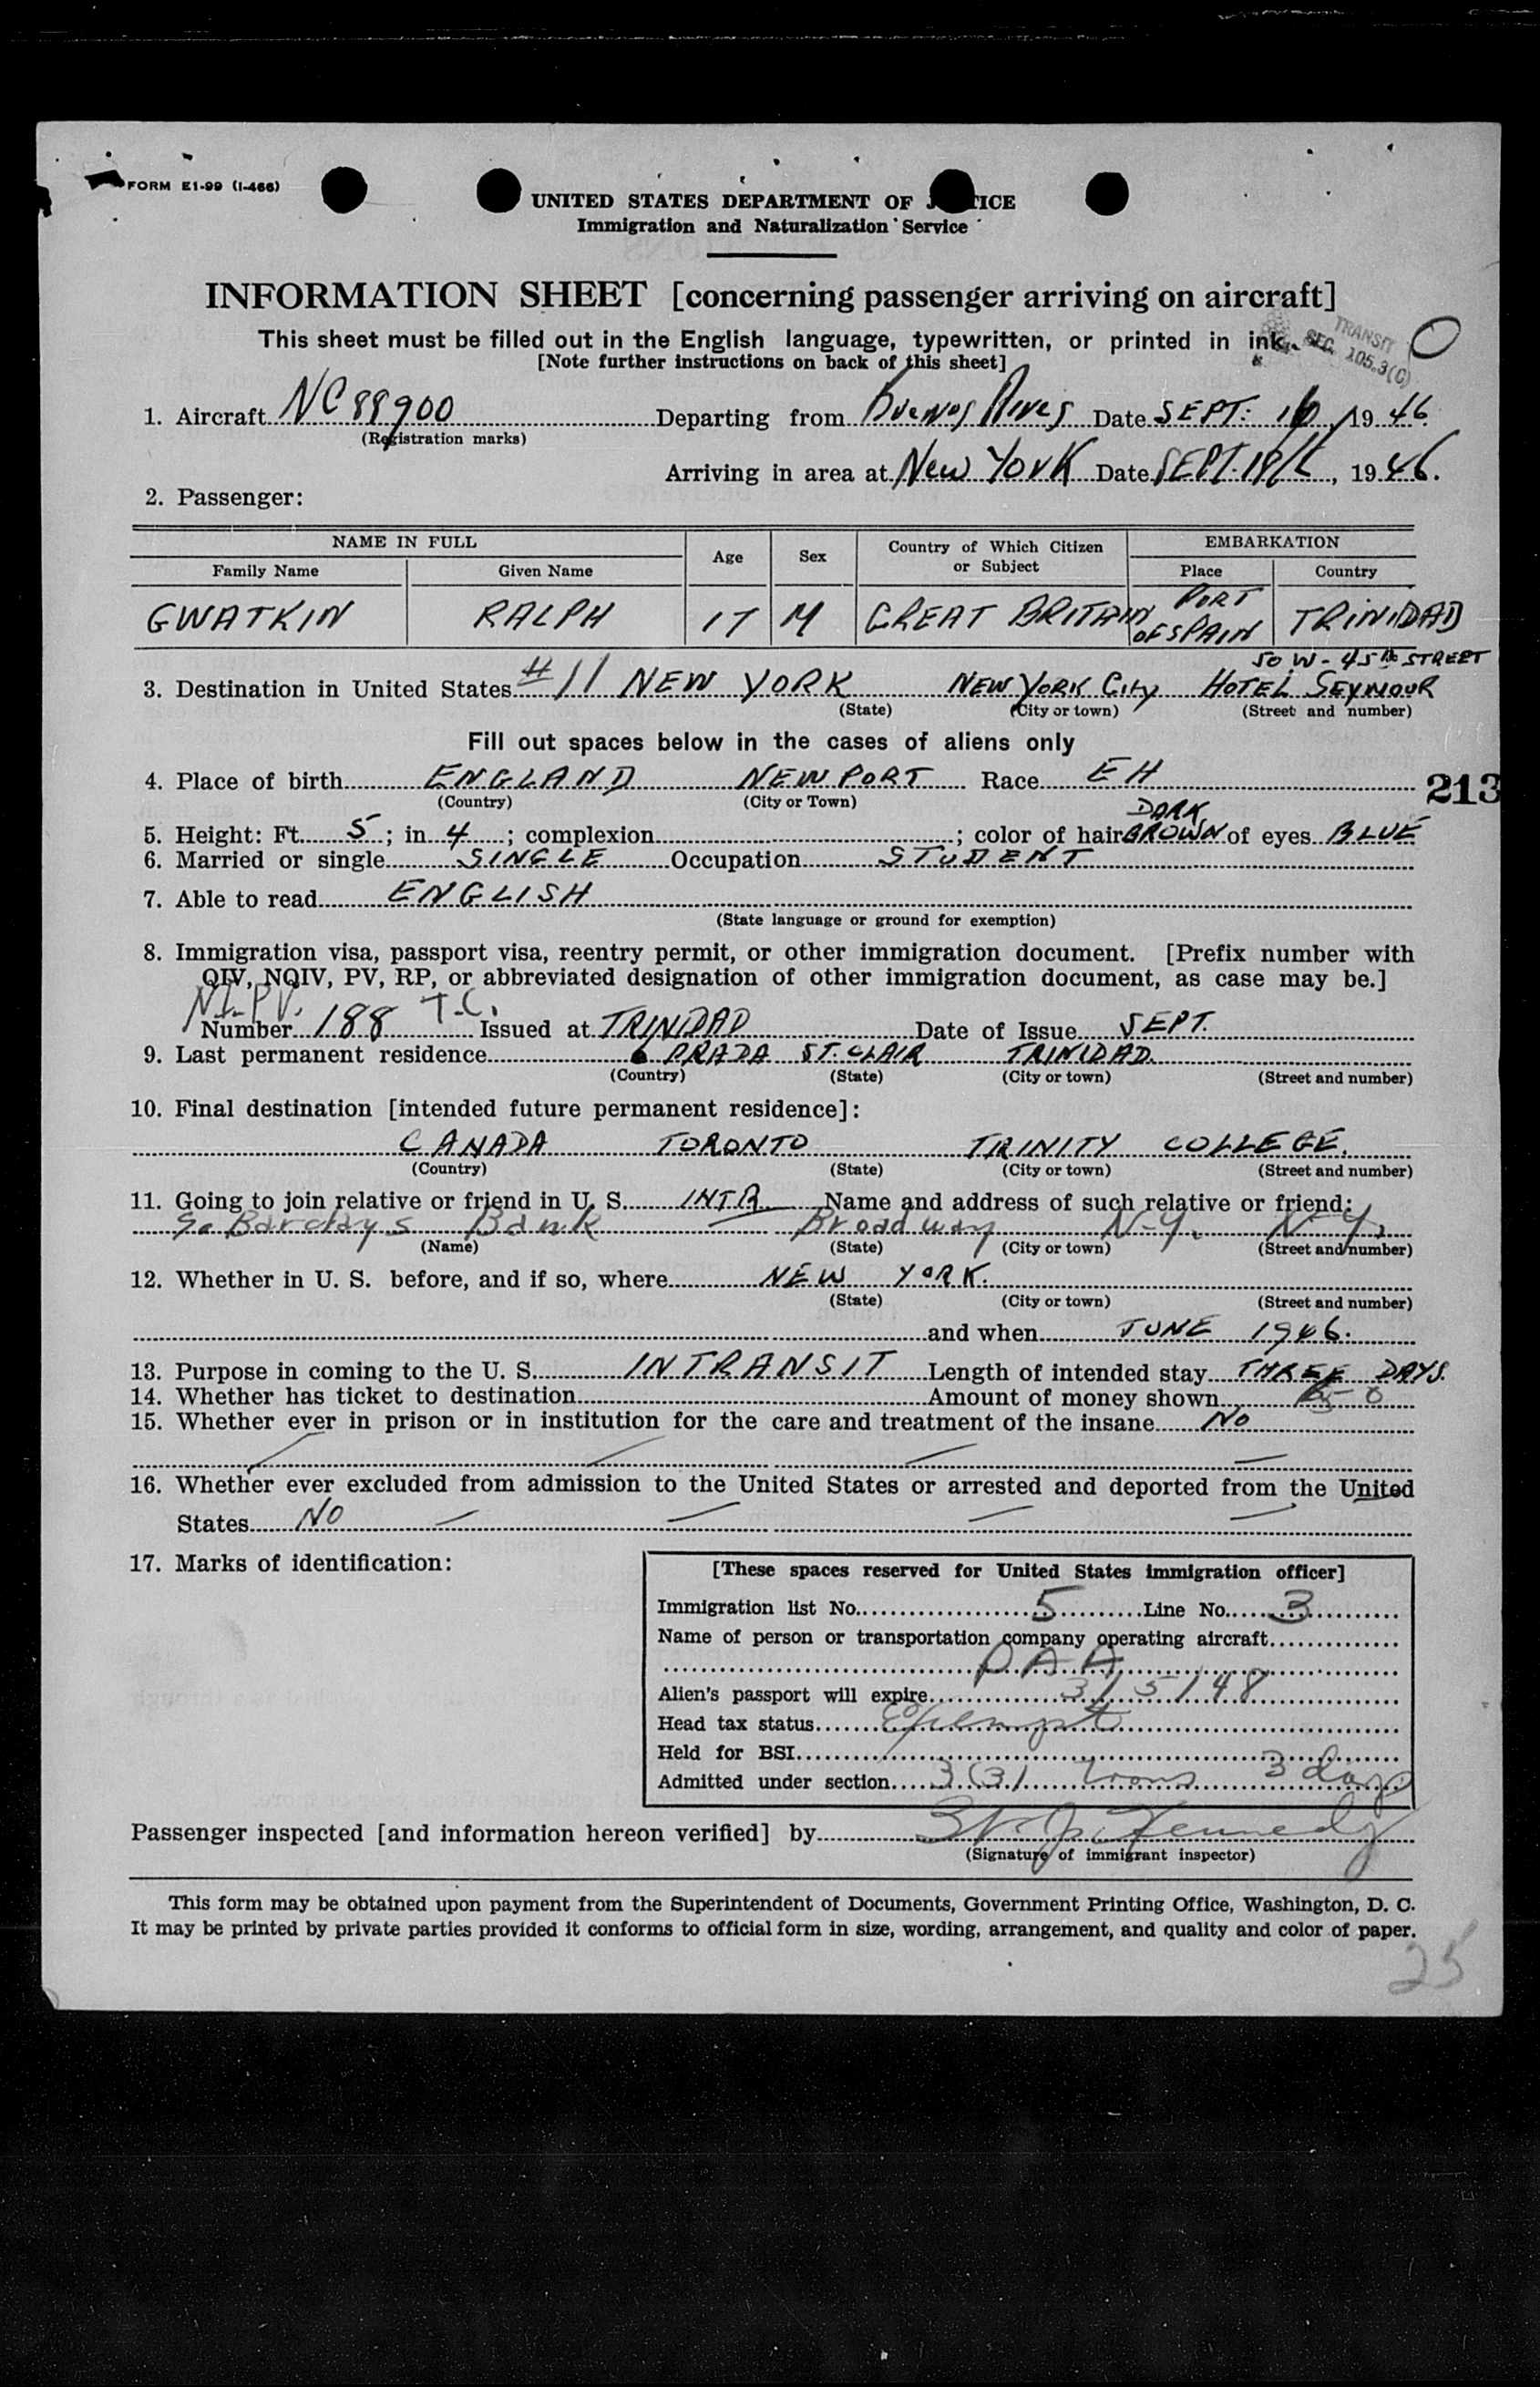 FORM E1-99 (I-466)
UNITED STATES DEPARTMENT OF J TICE
Immigration and Naturalization Service
INFORMATION SHEET [concerning passenger arriving on aircraft]
This sheet must be filled out in the English language, typewritten, or printed in ink.
TRANSIT
SEC. 105.3(C)
[Note further instructions on back of this sheet]
1. Aircraft NC88900 Departing from Buenos Aires Date SEPT. 16, 1946
(Registration marks)
Arriving in area at New York Date SEPT. 18, 1946.
2. Passenger:
NAME IN FULL Age Sex Country of Which Citizen or Subject EMBARKATION
Family Name Given Name Place Country
GWATKIN RALPH 17 M GREAT BRITAIN PORT OF SPAIN TRINIDAD
50 W - 45th STREET
3. Destination in United States #11 NEW YORK NEW YORK City HOTEL SEYMOUR
(State) (City or town) (Street and number)
Fill out spaces below in the cases of aliens only
4. Place of birth ENGLAND NEWPORT Race EH
213
(Country) (City or Town)
5. Height: Ft. 5; in. 4; complexion ; color of hair DARK BROWN of eyes BLUE
6. Married or single SINGLE Occupation STUDENT
7. Able to read ENGLISH
(State language or ground for exemption)
8. Immigration visa, passport visa, reentry permit, or other immigration document. [Prefix number with
QIV, NQIV, PV, RP, or abbreviated designation of other immigration document, as case may be.]
Number 188 T.C. Issued at TRINIDAD Date of Issue SEPT.
9. Last permanent residence 6 PRADA ST. CLAIR TRINIDAD.
(Country) (State) (City or town) (Street and number)
10. Final destination [intended future permanent residence]:
CANADA TORONTO TRINITY COLLEGE.
(Country) (State) (City or town) (Street and number)
11. Going to join relative or friend in U. S. INTR Name and address of such relative or friend:
Barclays Bank — Broadway N-Y. N-Y.
(Name) (State) (City or town) (Street and number)
12. Whether in U. S. before, and if so, where NEW YORK.
(State) (City or town) (Street and number)
and when JUNE 1946.
13. Purpose in coming to the U. S. INTRANSIT Length of intended stay THREE DAYS.
14. Whether has ticket to destination Amount of money shown 50
15. Whether ever in prison or in institution for the care and treatment of the insane No
16. Whether ever excluded from admission to the United States or arrested and deported from the United
States No
17. Marks of identification:
[These spaces reserved for United States immigration officer]
Immigration list No. 5 Line No. 3
Name of person or transportation company operating aircraft
PAA
Alien's passport will expire 3/5/48
Head tax status Exempt
Held for BSI
Admitted under section 3(3) trans 3 days
Passenger inspected [and information hereon verified] by Kennedy
(Signature of immigrant inspector)
This form may be obtained upon payment from the Superintendent of Documents, Government Printing Office, Washington, D. C.
It may be printed by private parties provided it conforms to official form in size, wording, arrangement, and quality and color of paper.
25